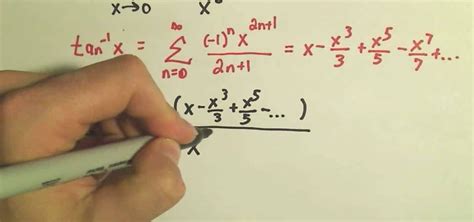 x→0 x
tan⁻¹x = ∞∑n=0 (-1)ⁿ x²ⁿ⁺¹ / 2n+1 = x - x³/3 + x⁵/5 - x⁷/7 + ...
(x - x³/3 + x⁵/5 - ... )
x